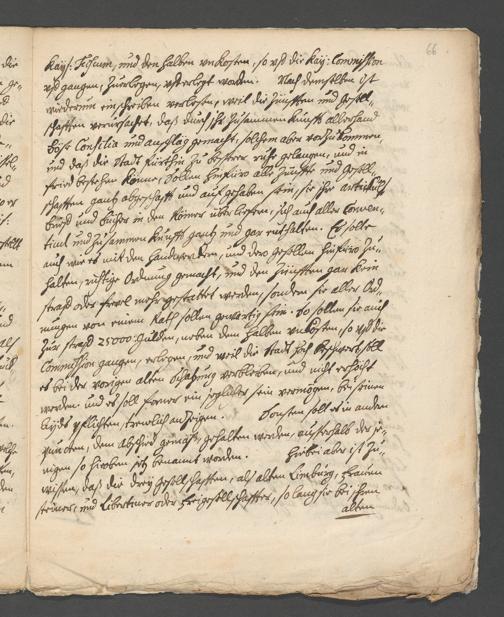 66
Kayß: Fiscum, und den halben unkosten, so uff die Kay: Commission
uff gangen, zu erlegen, ufferlegt worden. Nach demselben ist
widerumb ein schreiben verlesen, weil die Zünfften und Gesell-
schafften verursachet, daß durch ihr zusammen kunfft allerhand
böse Consilia und auffläg gemacht, solchem aber vorzukommen,
und daß die Stadt fürthin zu besserer ruhe gelangen, und in
fried bestehen könne, sollen hinfüro alle Zünffte und Gesell-
schafften gantz abgeschafft und auffgehaben sein, sie ihre articuls
brieff und bücher in den Römer überliefern, sich auch aller Conven-
ticul und zusammen künfft gantz und gar enthalten. Es solle
auch wie es mit den Handwercken, und dero gesellen hinfüro zu-
halten, richtige Ordnung gemacht, und den Zünfften gar kein
straff oder frevel mehr gestattet werden, sondern sie aller Ord-
nungen von einem Rath sollen gewärtig sein. So sollen sie auch
zur straff 25000 Gulden, neben dem halben unkosten, so uff die
Commission gangen, erlegen, und weil die Stadt hoch beschwert soll
es bei der vorigen alten Schatzung verbleiben, und nicht erhöcht
werden. und es soll ferner ein jeglicher sein vermögen, bei seinen
Eydts pflichten, treulich anzeigen. Sonsten sollt es in andern
puncten, dem abschied gemäß gehalten werden, ausserhalb der je-
nigen so hieoben sitz benannt worden. Hiebei aber ist zu-
wissen, daß die drey Gesellschafften, als alten Limburg, Frauen
steiner, und Libertiner oder Freigesellschaffter, so lang sie bei ihrem
alten